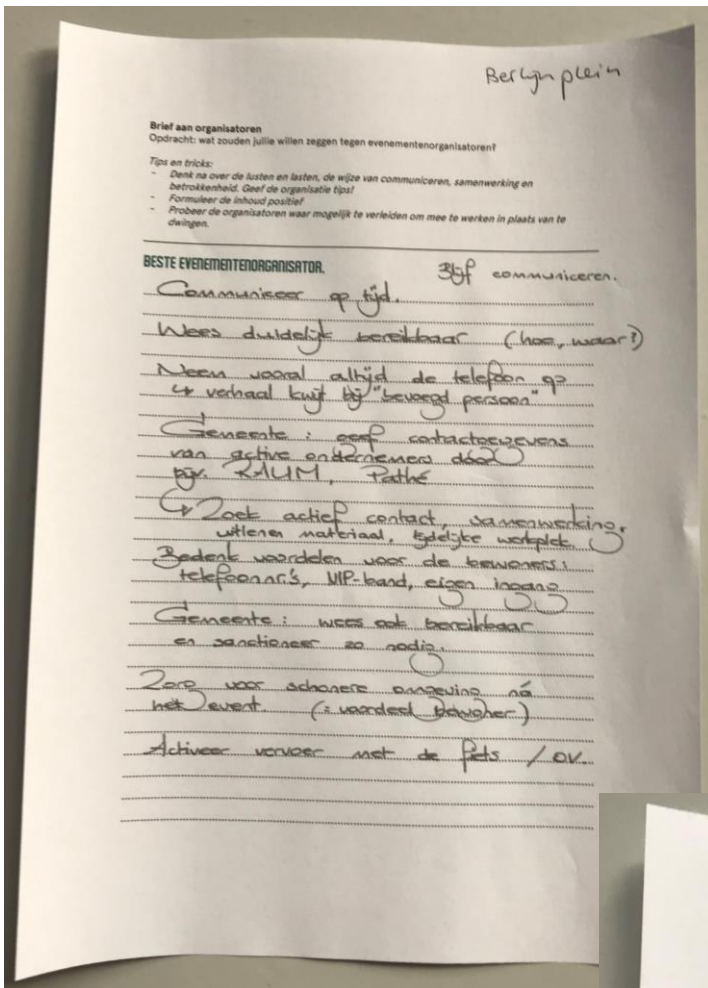 Berlijnplein
Brief aan organisatoren
Opdracht: wat zouden jullie willen zeggen tegen evenementenorganisatoren?
Tips en tricks:
- Denk na over de lusten en lasten, de wijze van communiceren, samenwerking en
betrokkenheid. Geef de organisatie tips!
- Formuleer de inhoud positief
- Probeer de organisatoren waar mogelijk te verleiden om mee te werken in plaats van te
dwingen.
BESTE EVENEMENTENORGANISATOR,
Blijf communiceren.
Communiceer op tijd.
Wees duidelijk bereikbaar (hoe, waar?)
Neem vooral altijd de telefoon op
↳ verhaal kwijt bij "bevoegd persoon"
Gemeente: geef contactgegevens
van active ondernemers door
bijv. RAUM, Pathé
↳ Zoek actief contact, samenwerking,
uitlenen materiaal, tijdelijke werkplek
Bedenk voordelen voor de bewoners:
telefoonnr's, VIP-band, eigen ingang
Gemeente: wees ook bereikbaar
en sanctioneer zo nodig.
Zorg voor schonere omgeving ná
het event. (= voordeel bewoner)
Activeer vervoer met de fiets / OV.